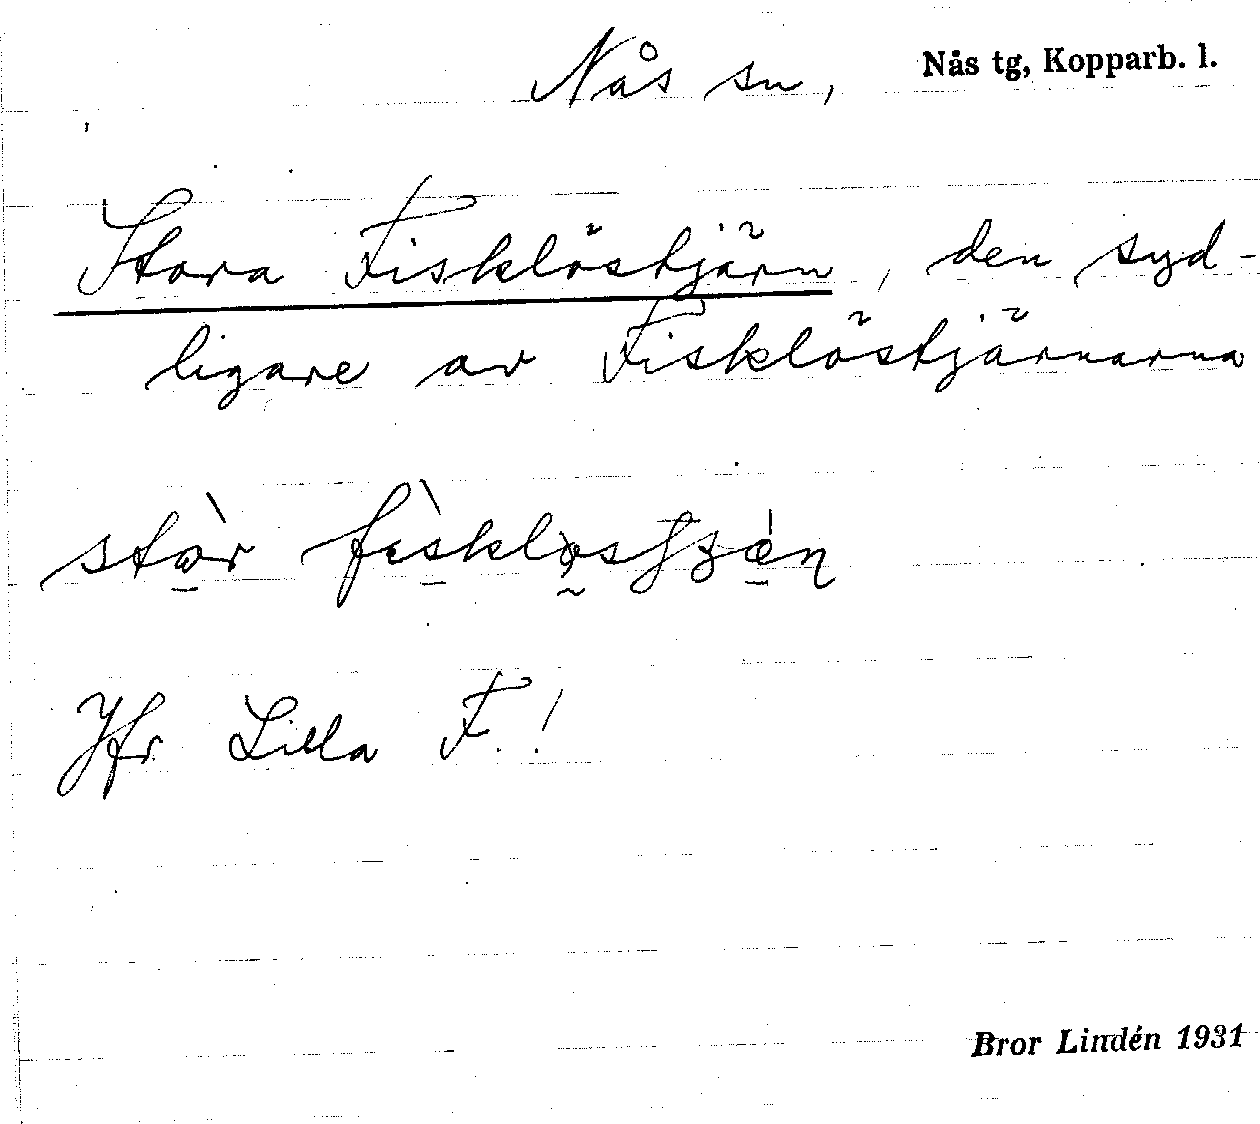 Nås sn, Nås tg, Kopparb. l.
Stora Fisklöstjärn, den syd-
ligare av Fisklöstjärnarna
stòr
Jfr Lilla F.!
Bror Lindén 1931